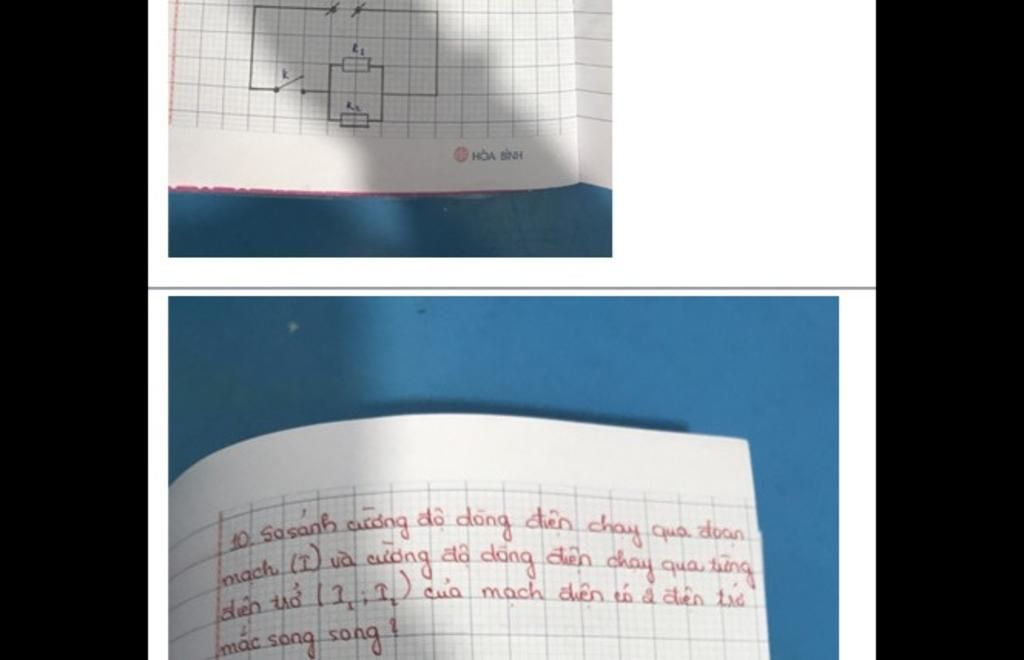 R1
K
R2
HÒA BÌNH
10. So sánh cường độ dòng điện chạy qua đoạn
mạch (I) và cường độ dòng điện chạy qua từng
điện trở (I1; I2) của mạch điện có 2 điện trở
mắc song song?